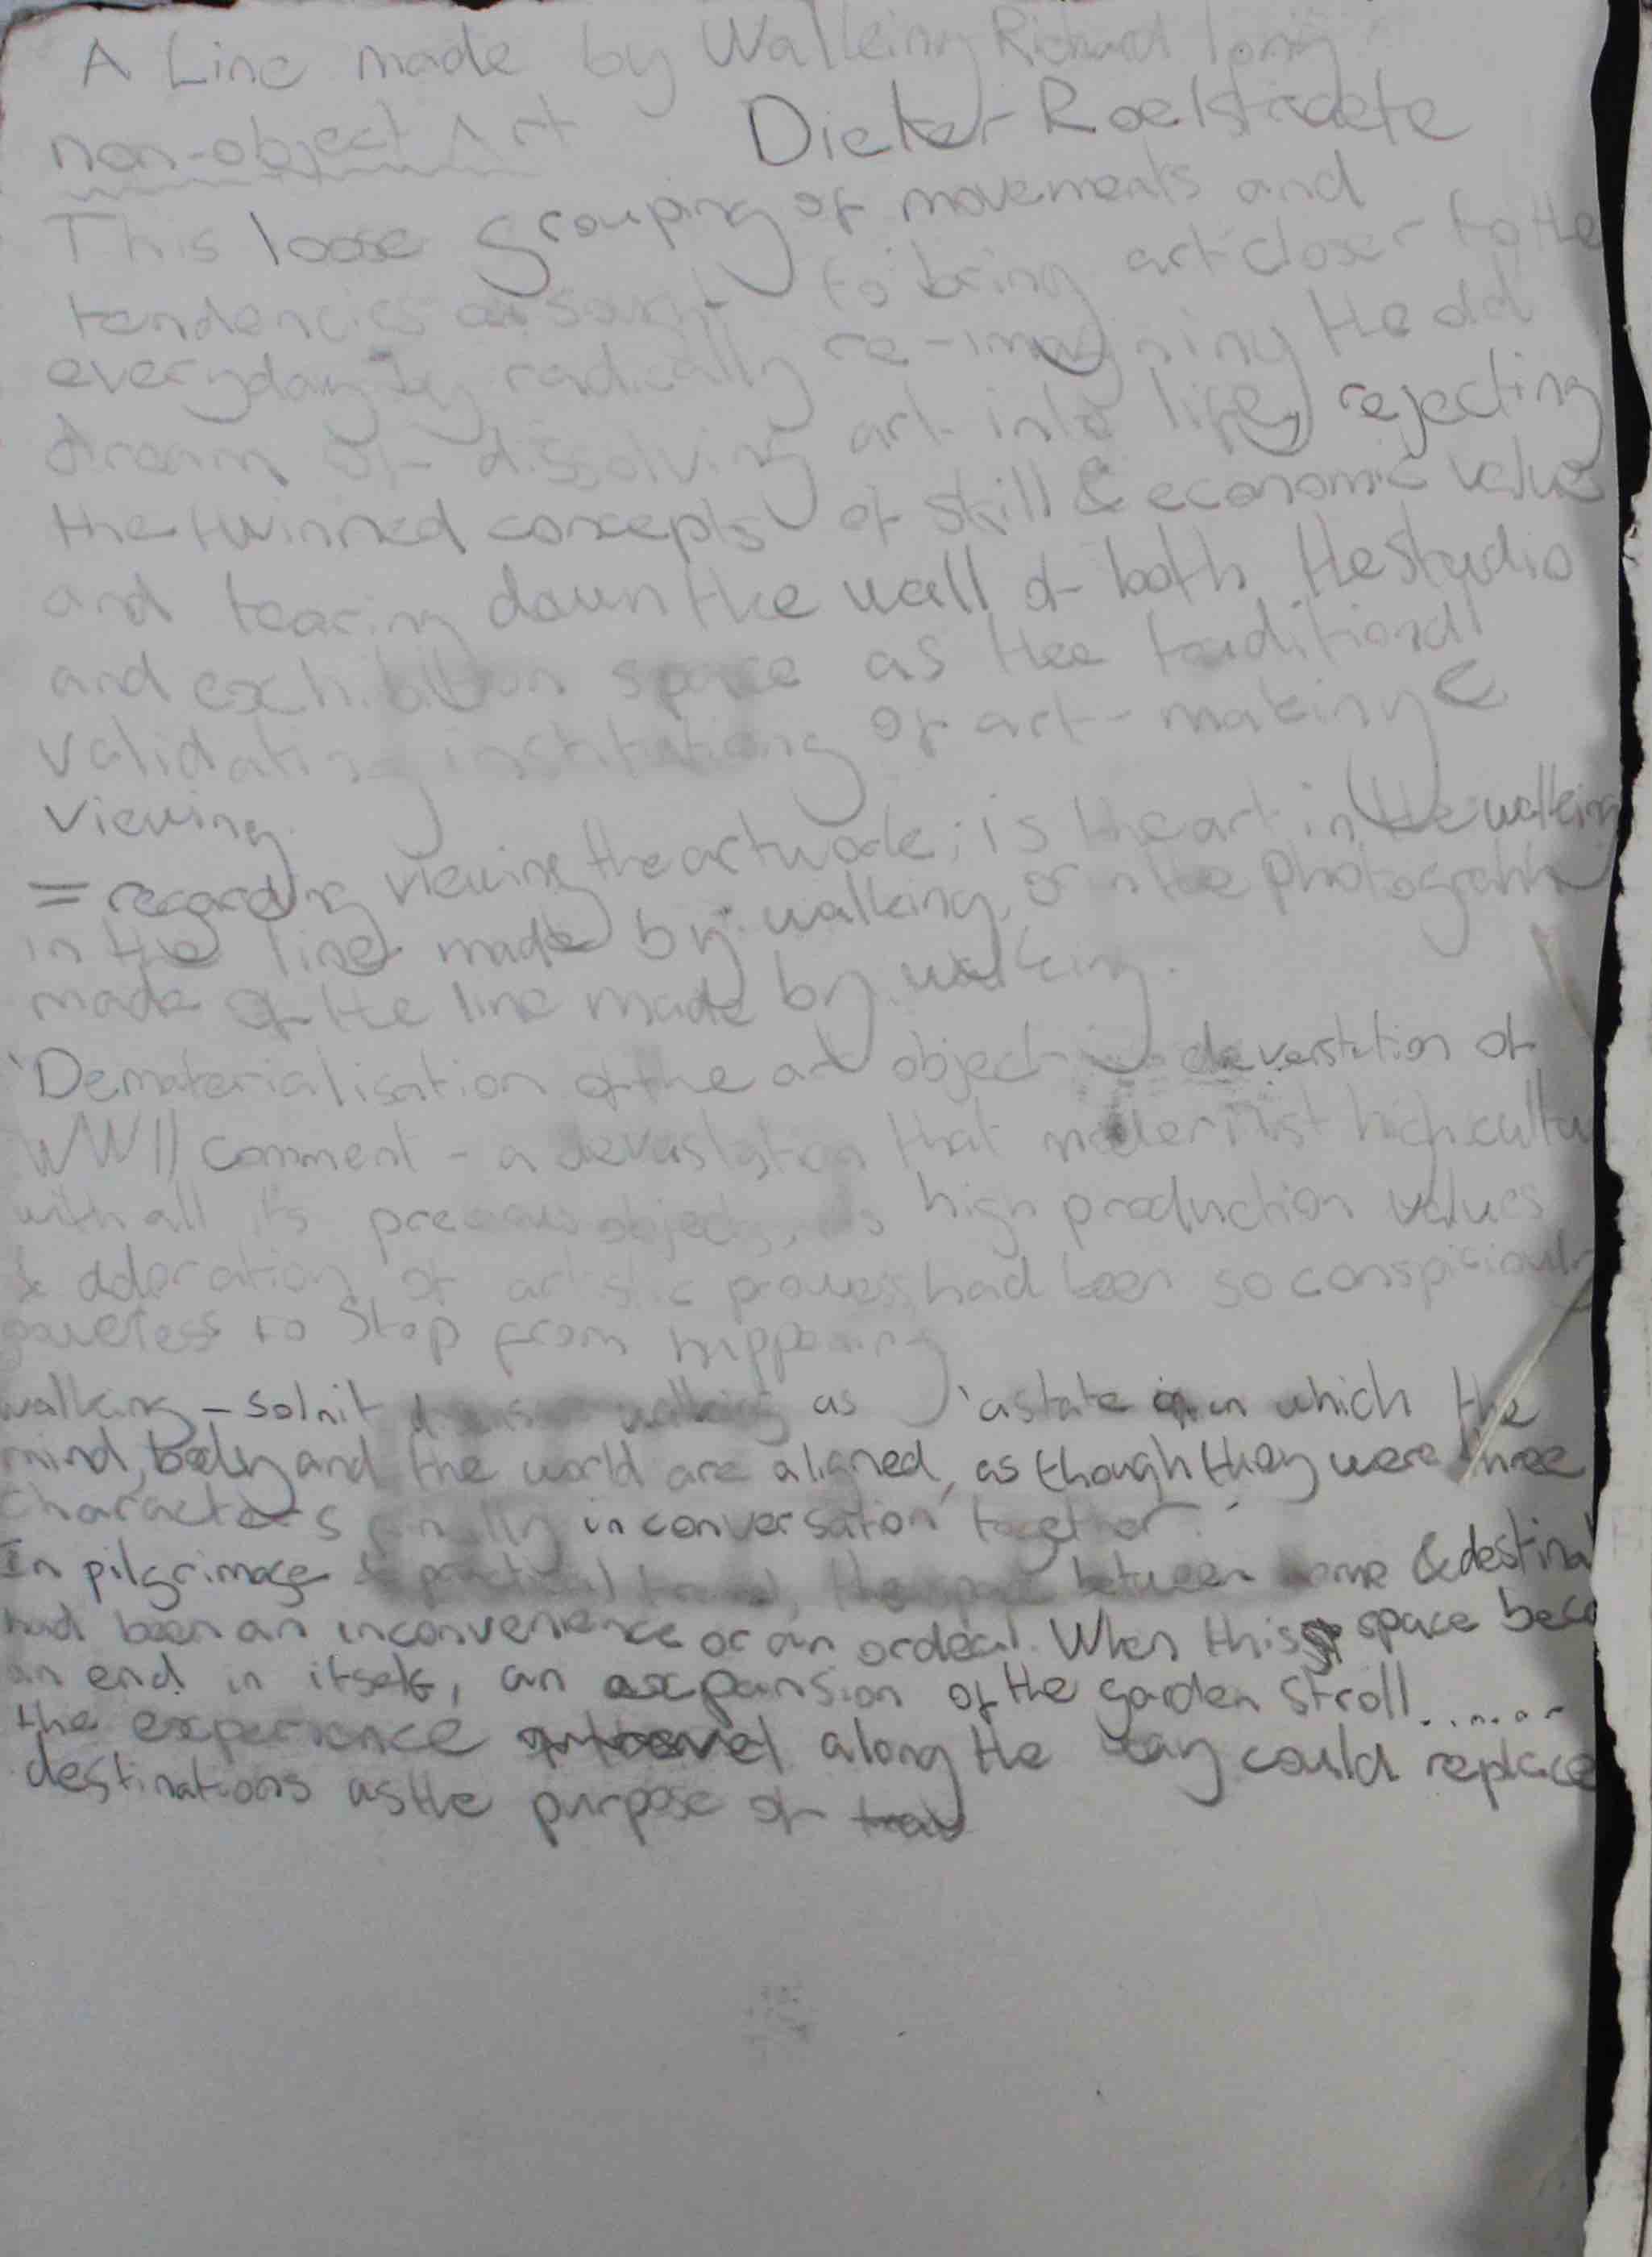 A Line made by Walking Richard Long
non-object Art Dieter Roelstraete
This loose grouping of movements and
tendencies sought to bring art closer to the
everyday by radically re-imagining the old
dream of dissolving art into life, rejecting
the twinned concepts of skill & economic value
and tearing down the wall of both the studio
and exhibition space as the traditional
validating institutions of art-making &
viewing.
= regarding viewing the artwork; is the art in the walking
in the line made by walking, or in the photograph
made of the line made by walking.
'Dematerialisation of the art object deverstation of
WWII comment - a devastation that modernist high cultu
with all its precious objects, its high production values
& adoration of artistic prowess, had been so conspiciously
powerless to stop from happening
walking - Solnit walking as 'a state in which the
mind, body and the world are aligned, as though they were three
characters finally in conversation together.'
In pilgrimage & practical travel, the space between home & destinat
had been an inconvenience or an ordeal. When this space beco
an end in itself, an expansion of the garden stroll.......
the experience along the way could replace
destinations as the purpose of trav